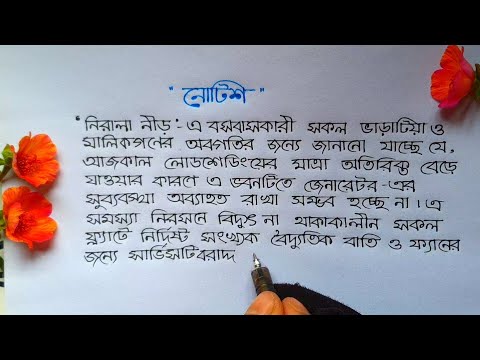 " নোটিশ "
"নিরালা নীড়": এ বসবাসকারী সকল ভাড়াটিয়া ও
মালিকগনের অবগতির জন্যে জানানো যাচ্ছে যে,
আজকাল লোডশেডিংয়ের মাত্রা অতিরিক্ত বেড়ে
যাওয়ার কারণে এ ভবনটিতে জেনারেটর-এর
সুব্যবস্থা অব্যাহত রাখা সম্ভব হচ্ছে না। এ
সমস্যা নিরসনে বিদ্যুৎ না থাকাকালীন সকল
ফ্ল্যাটে নির্দিষ্ট সংখ্যক বৈদ্যুতিক বাতি ও ফ্যানের
জন্যে সার্ভিসটি বরাদ্দ